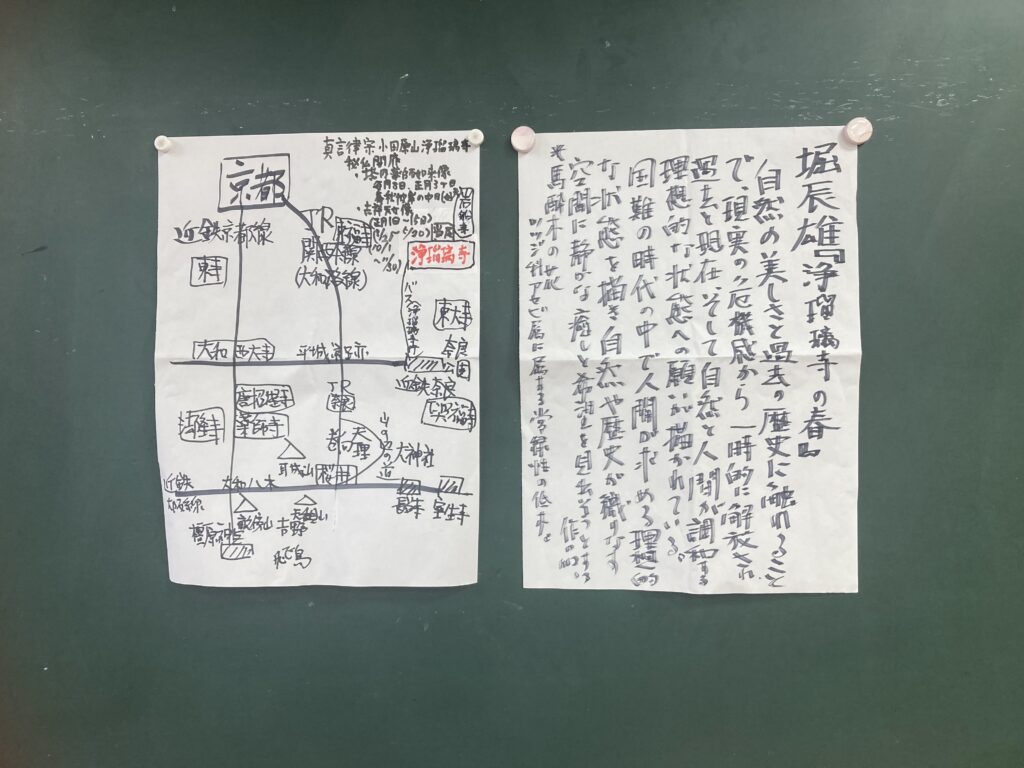 真言律宗小田原山浄瑠璃寺
秘仏開扉
京都
近鉄京都線
JR
関西本線
(大和路線)
東寺
浄瑠璃寺
東大寺
奈良
公園
大和西大寺
近鉄奈良
興福寺
唐招提寺
薬師寺
JR
天理
山の辺の道
大神社
耳成山
桜井
近鉄
大和八木
室生寺
吉野
飛鳥
堀辰雄『浄瑠璃寺の春』
自然の美しさと過去の歴史に触れること
で、現実の危機感から一時的に解放され
過去と現在、そして自然と人間が調和する
理想的な状態への願いが描かれている。
困難の時代の中で人間が求める理想的
な状態を描き自然や歴史が織りなす
空間に静かな癒しと希望を見出そうとする
作品。
*馬酔木の花
ツツジ科アセビ属に属する常緑性の低木。